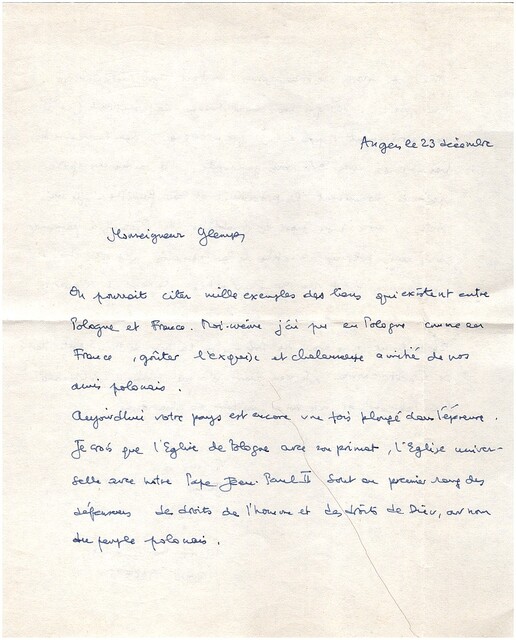 Angers le 23 décembre
Monseigneur Glemp,
On pourrait citer mille exemples des liens qui existent entre
Pologne et France. Moi-même j'ai pu en Pologne comme en
France, goûter l'exquise et chaleureuse amitié de nos
amis polonais.
Aujourd'hui votre pays est encore une fois plongé dans l'épreuve.
Je crois que l'Eglise de Pologne avec son primat, l'Eglise univer-
selle avec notre Pape Jean-Paul II sont au premier rang des
défenseurs des droits de l'homme et des droits de Dieu, au nom
du peuple polonais.